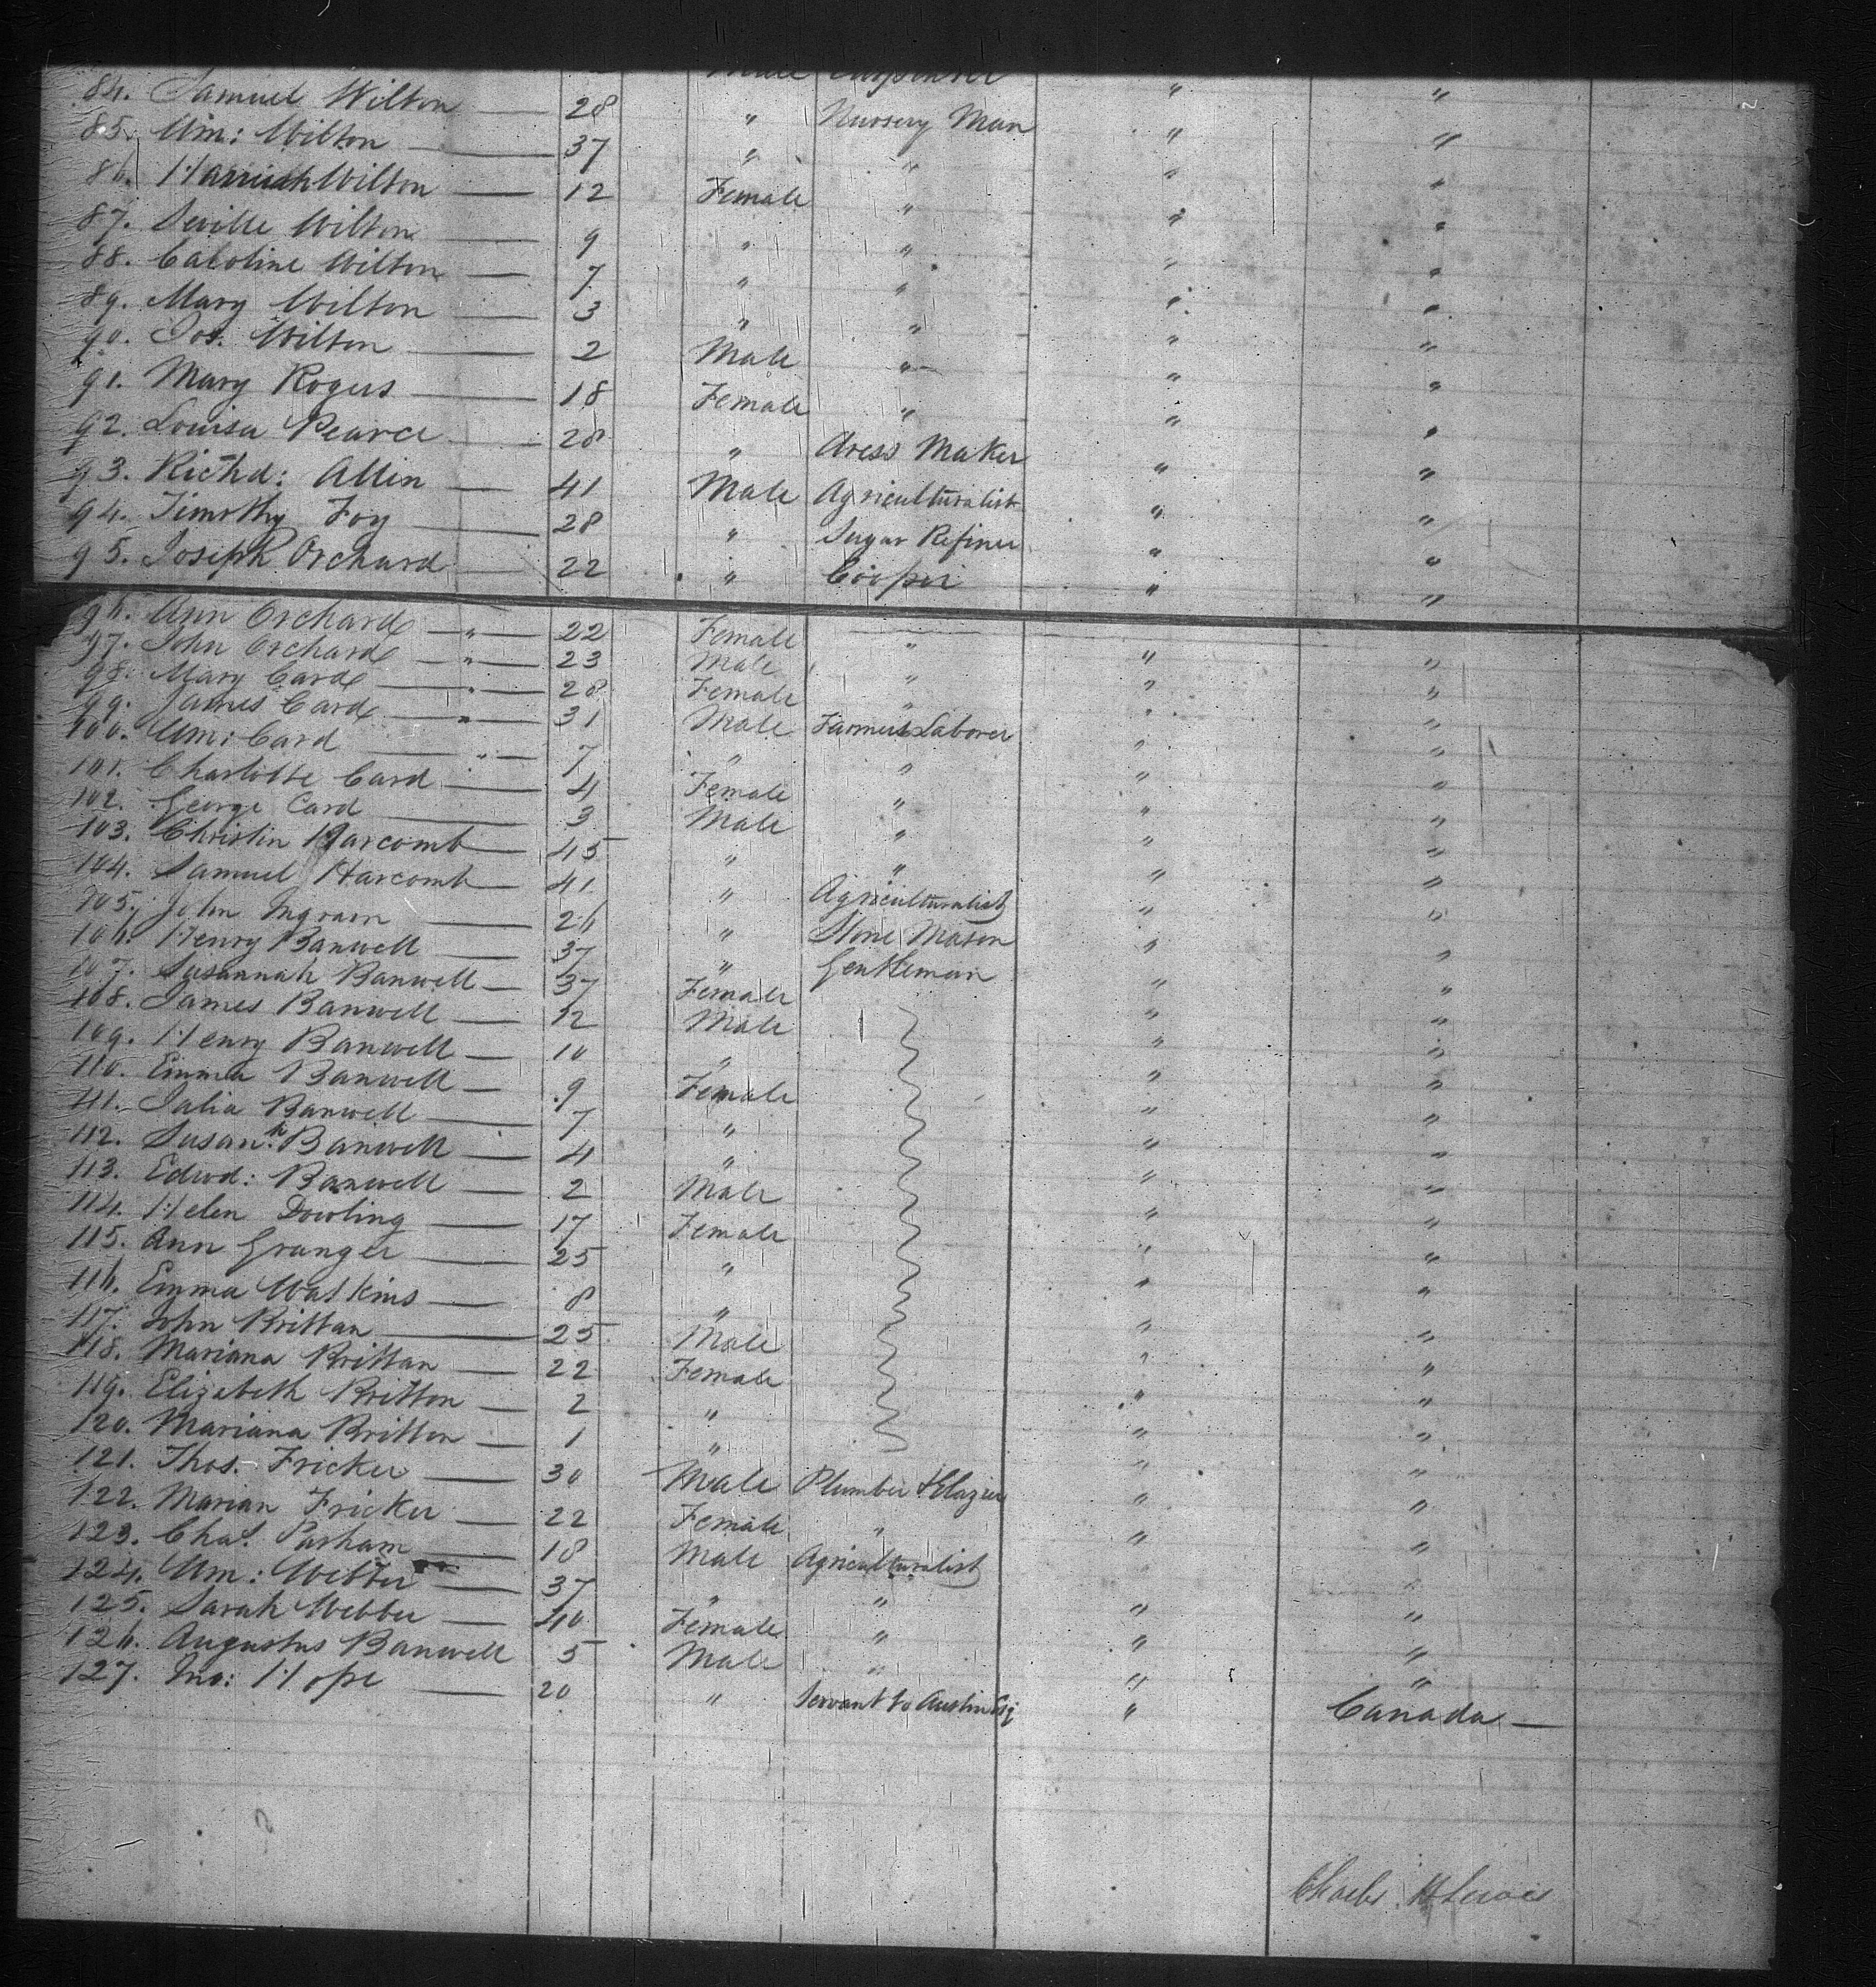 Male Carpenter
84. Samuel Wilton — 28 " Nursery Man " "
85. Wm: Wilton — 37 " " " "
86. Wilton — 12 Female " " "
87. Seville Wilton — 9 " " " "
88. Caroline Wilton — 7 " " " "
89. Mary Wilton — 3 " " " "
90. Jos. Wilton — 2 Male " " "
91. Mary Rogers — 18 Female " " "
92. Louisa Pearce — 28 " Dress Maker " "
93. Richd: Allin — 41 Male Agriculturalist " "
94. Timothy Foy — 28 " Sugar Refiner " "
95. Joseph Orchard 22 " Cooper " "
96. Ann Orchard — " — 22 Female " " "
97. John Orchard — " — 23 Male " " "
98. Mary Card — " — 28 Female " " "
99. James Card — " — 31 Male Farmers Laborer " "
100. Wm: Card — " — 7 " " " "
101. Charlotte Card — 4 Female " " "
102. George Card — 3 Male " " "
103. Christin Harcomb — 45 " " " "
104. Samuel Harcomb — 41 " Agriculturalist " "
105. John Ingram — 26 " Stone Mason " "
106. Henry Banwell — 37 " Gentleman " "
107. Susannah Banwell — 37 Female " "
108. James Banwell — 12 Male " "
109. Henry Banwell — 10 " " "
110. Emma Banwell — 9 Female " "
111. Julia Banwell — 7 " " "
112. Susanh. Banwell — 4 " " "
113. Edwd: Banwell — 2 Male " "
114. Helen Dowling — 17 Female " "
115. Ann Granger — 25 " " "
116. Emma Watkins — 8 " " "
117. John Brittan — 25 Male " "
118. Mariana Brittan — 22 Female " "
119. Elizabeth Britton — 2 " " "
120. Mariana Britton — 1 " " "
121. Thos. Fricker — 30 Male Plumber & Glazier " "
122. Marian Fricker — 22 Female " " "
123. Chas. Parham — 18 Male Agriculturalist " "
124. Wm: Webber — 37 " " " "
125. Sarah Webber — 40 Female " " "
126. Augustus Banwell 5 Male " " "
127. Jno: Hope — 20 " Servant to Austin Esq " Canada —
Charles H Lewis